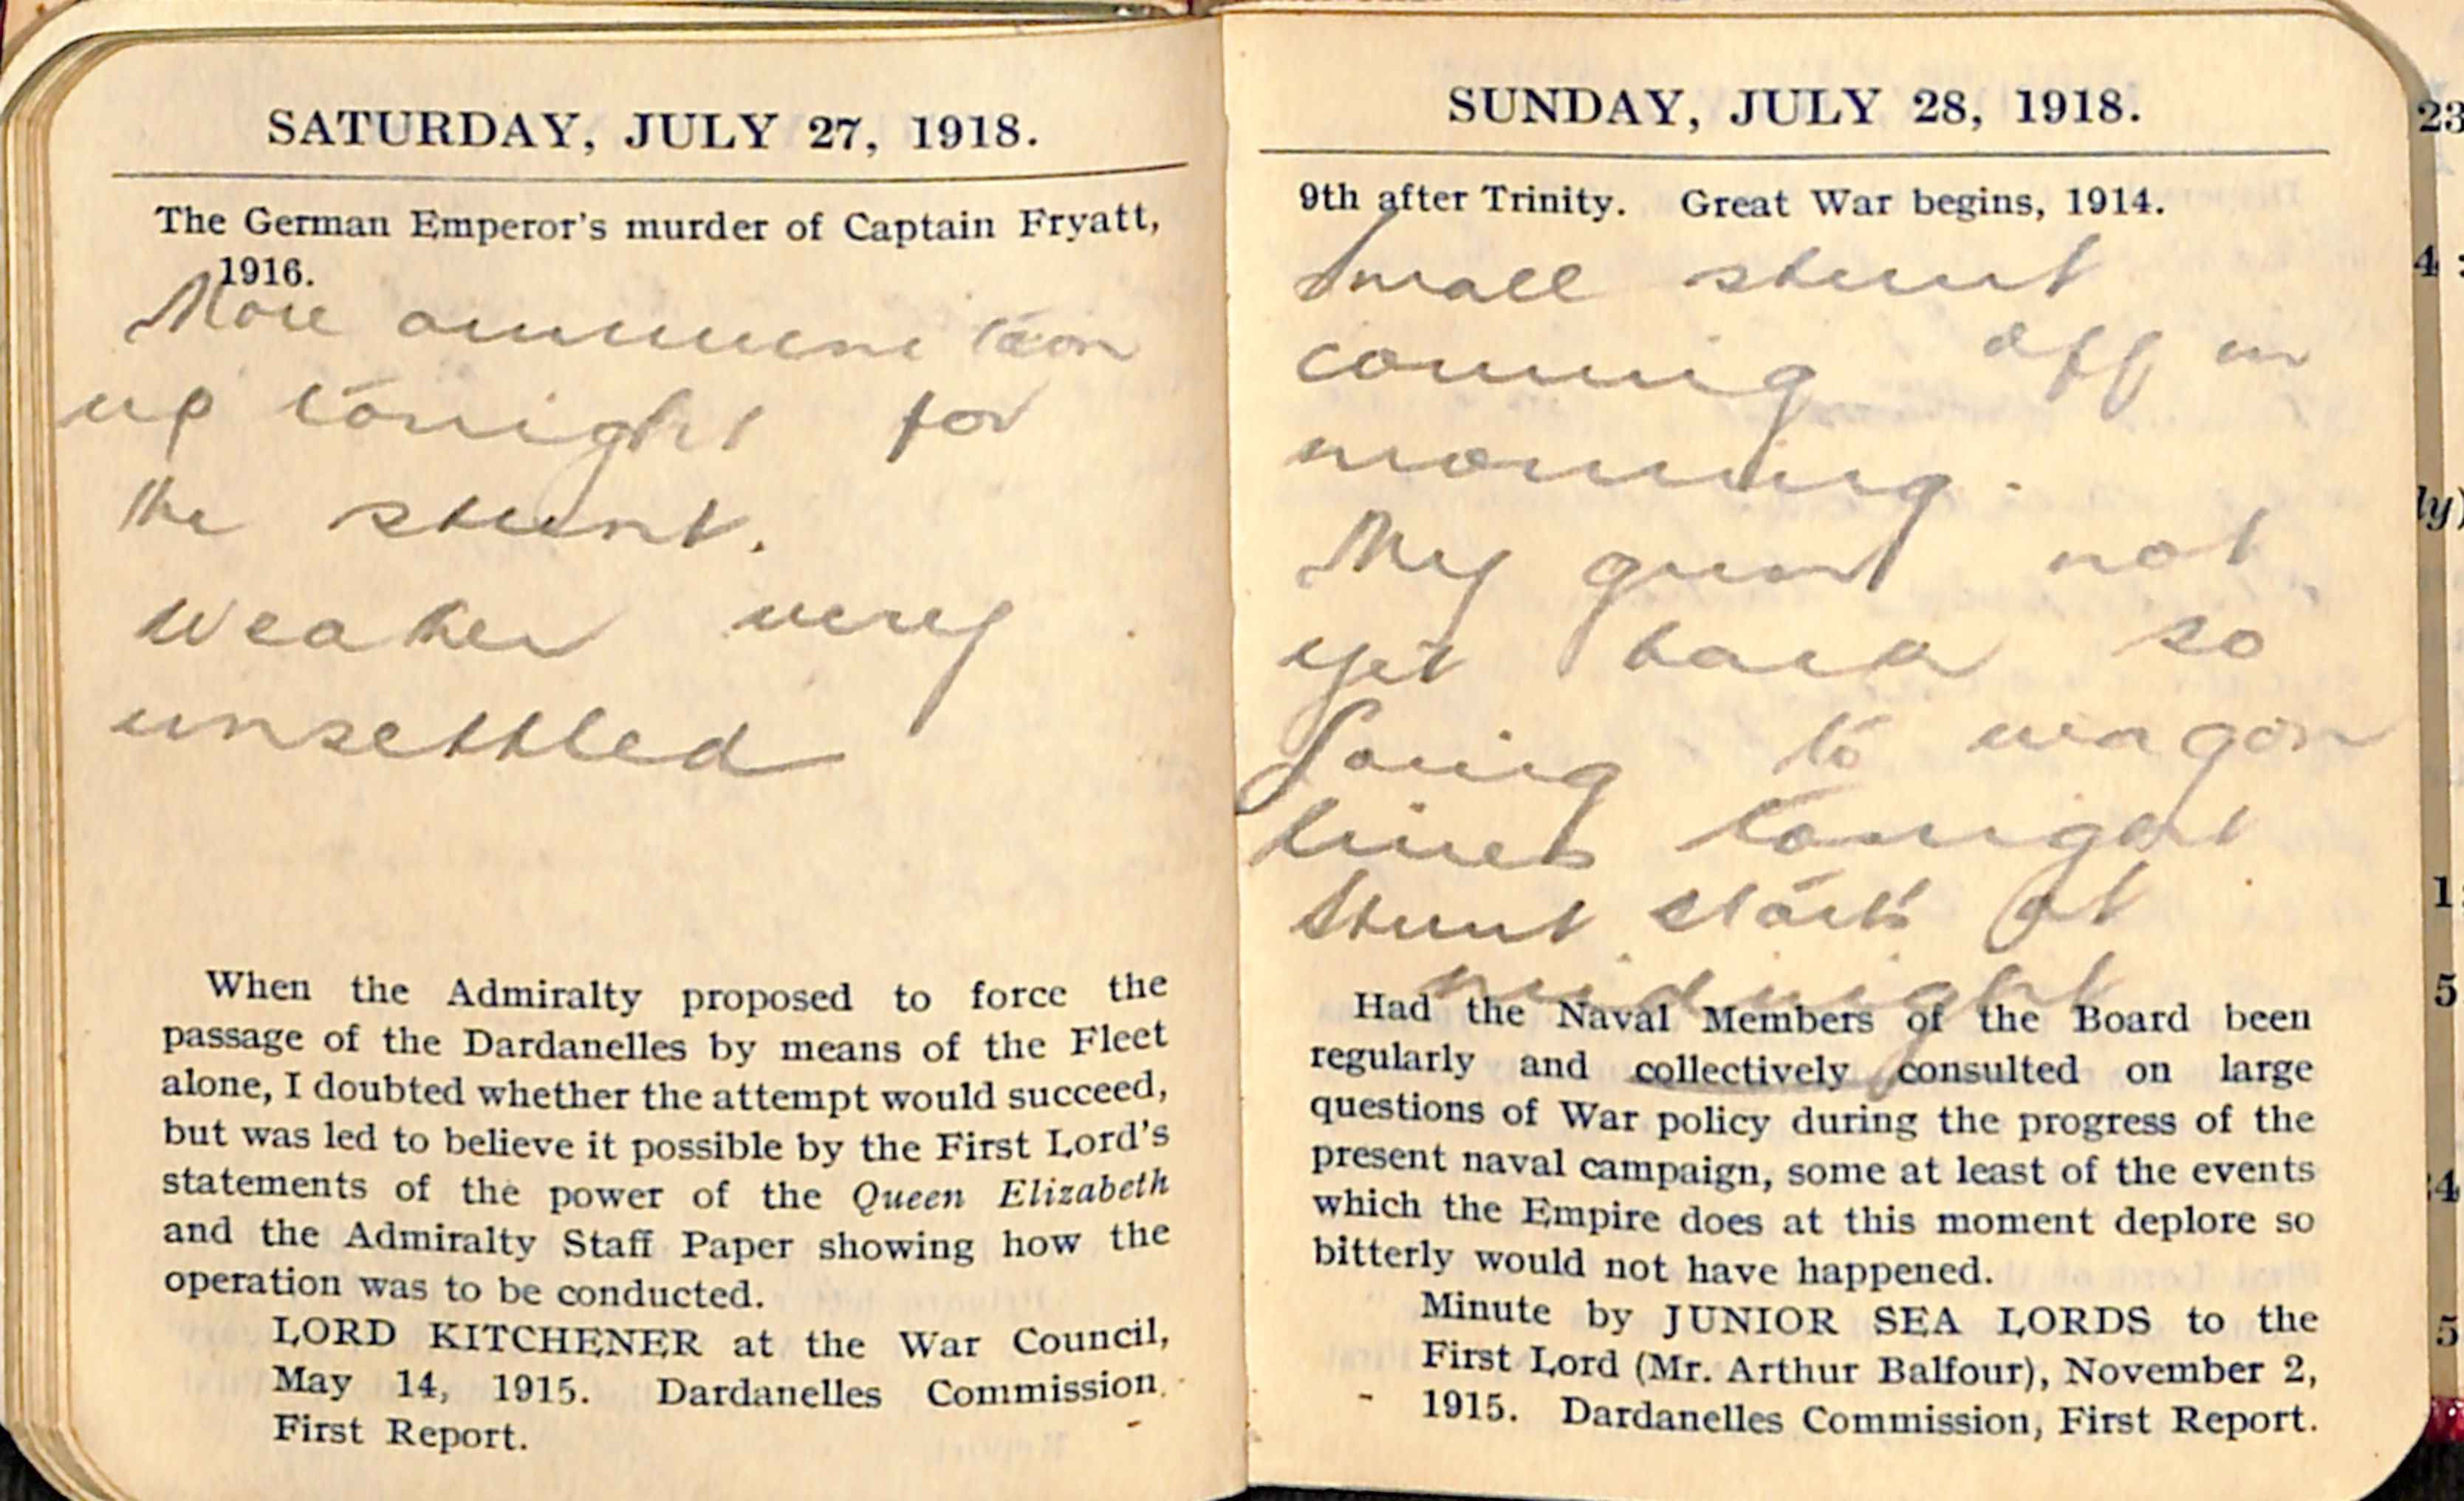 SATURDAY, JULY 27, 1918.
The German Emperor's murder of Captain Fryatt,
1916.
More ammunition
up tonight for
the stunt.
Weather very
unsettled
When the Admiralty proposed to force the
passage of the Dardanelles by means of the Fleet
alone, I doubted whether the attempt would succeed,
but was led to believe it possible by the First Lord's
statements of the power of the Queen Elizabeth
and the Admiralty Staff Paper showing how the
operation was to be conducted.
LORD KITCHENER at the War Council,
May 14, 1915. Dardanelles Commission,
First Report.
SUNDAY, JULY 28, 1918.
9th after Trinity. Great War begins, 1914.
Small stunt
coming off in
morning.
My guns not
yet back so
Going to wagon
lines tonight
Stunt starts at
midnight
Had the Naval Members of the Board been
regularly and collectively consulted on large
questions of War policy during the progress of the
present naval campaign, some at least of the events
which the Empire does at this moment deplore so
bitterly would not have happened.
Minute by JUNIOR SEA LORDS to the
First Lord (Mr. Arthur Balfour), November 2,
1915. Dardanelles Commission, First Report.
23
4 :
ly)
1
5
4
5